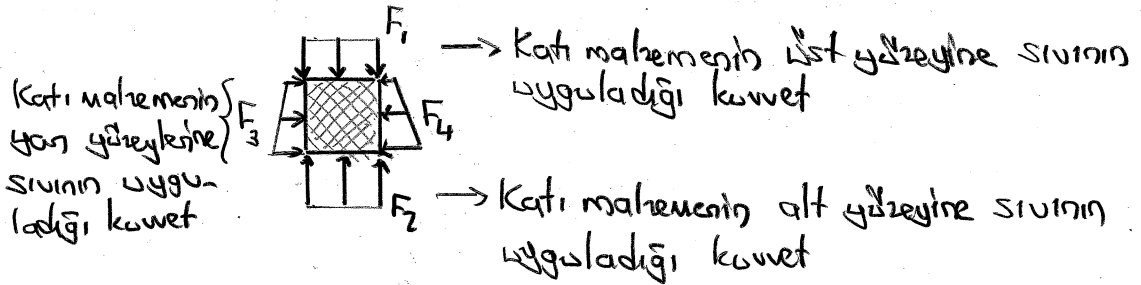 F₁ → Katı malzemenin üst yüzeyine sıvının
uyguladığı kuvvet
Katı malzemenin
yan yüzeylerine } F₃
sıvının uygu-
ladığı kuvvet
F₄
F₂ → Katı malzemenin alt yüzeyine sıvının
uyguladığı kuvvet